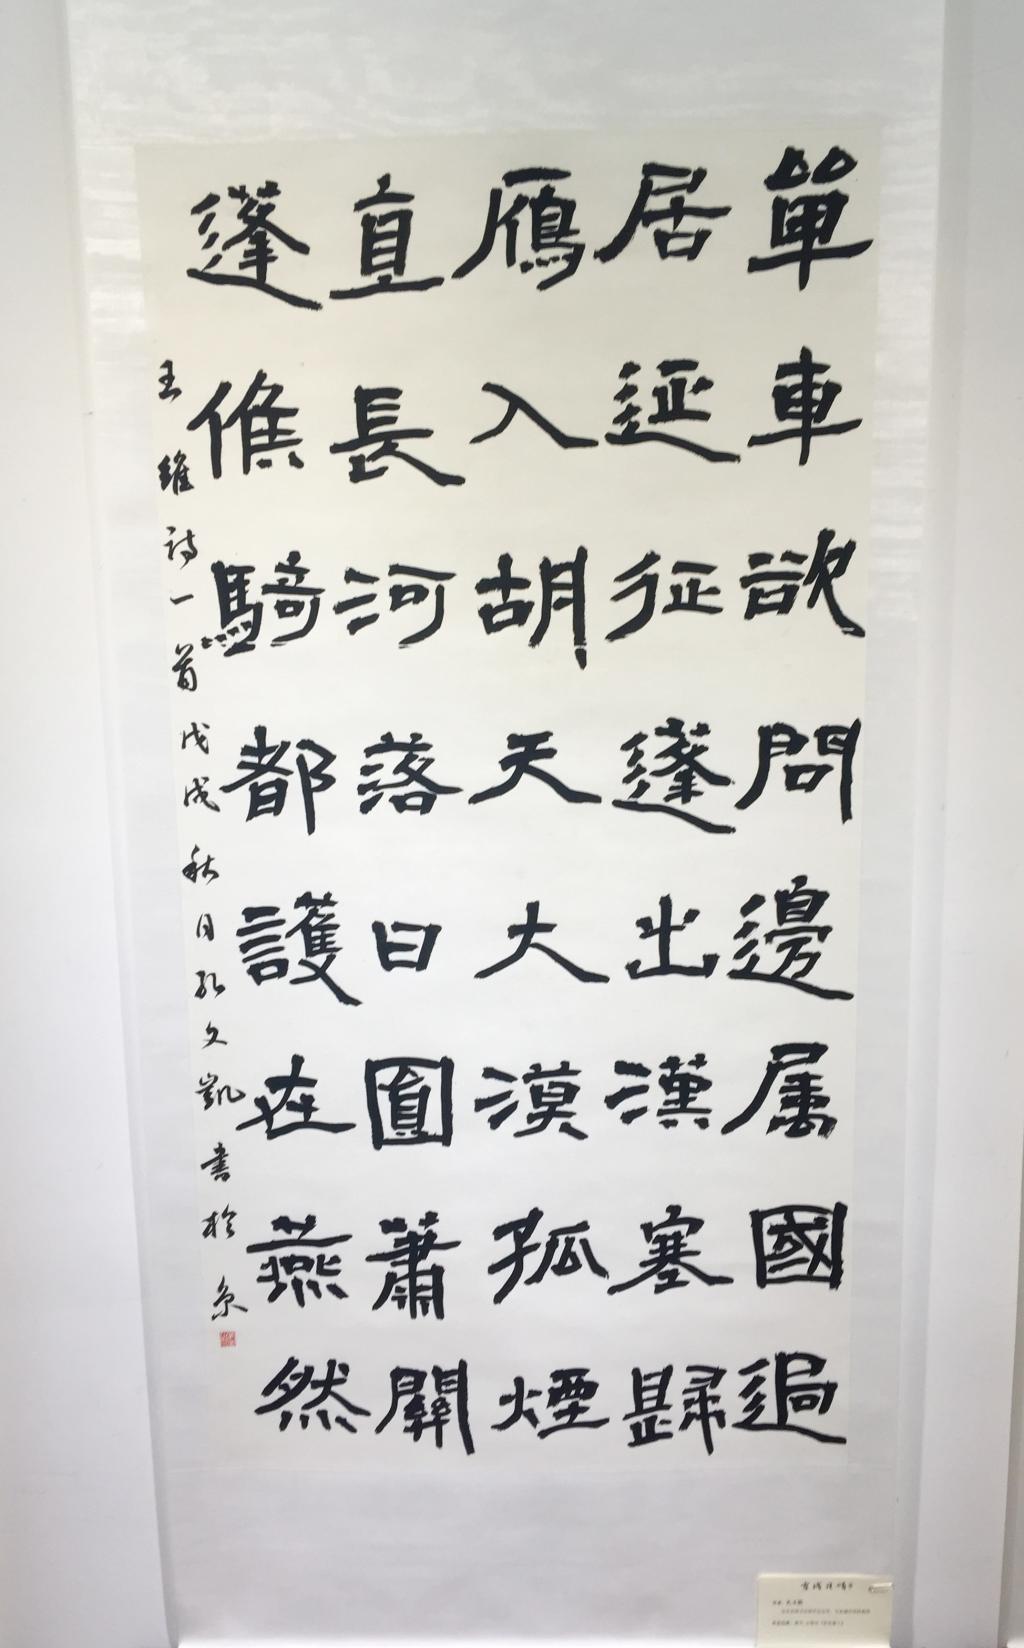 單車欲問邊属國過
居延征蓬出漢塞歸
鴈入胡天大漠孤煙
直長河落日圓蕭關
蓬候騎都護在燕然
王維詩一首戊戌秋月孔文凱書於京